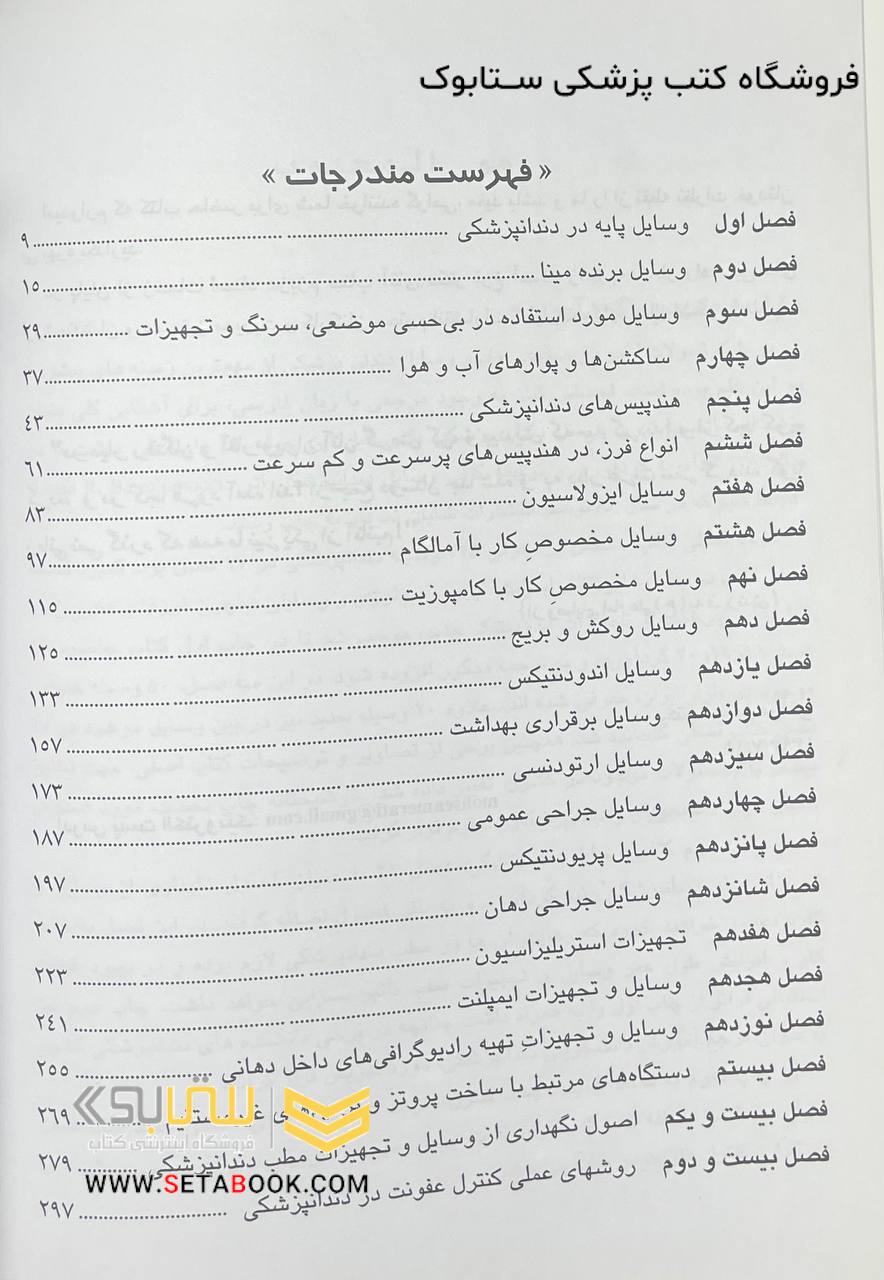 فروشگاه کتب پزشکی ستابوک
« فهرست مندرجات »
فصل اول وسایل پایه در دندانپزشکی ۹
فصل دوم وسایل برنده مینا ۱۵
فصل سوم وسایل مورد استفاده در بی‌حسی موضعی، سرنگ و تجهیزات ۲۹
فصل چهارم ساکشن‌ها و پوارهای آب و هوا ۳۷
فصل پنجم هندپیس‌های دندانپزشکی ۴۳
فصل ششم انواع فرز، در هندپیس‌های پرسرعت و کم سرعت ۶۱
فصل هفتم وسایل ایزولاسیون ۸۳
فصل هشتم وسایل مخصوصِ کار با آمالگام ۹۷
فصل نهم وسایل مخصوصِ کار با کامپوزیت ۱۱۵
فصل دهم وسایل روکش و بریج ۱۲۵
فصل یازدهم وسایل اندودنتیکس ۱۳۳
فصل دوازدهم وسایل برقراری بهداشت ۱۵۷
فصل سیزدهم وسایل ارتودنسی ۱۷۳
فصل چهاردهم وسایل جراحی عمومی ۱۸۷
فصل پانزدهم وسایل پریودنتیکس ۱۹۷
فصل شانزدهم وسایل جراحی دهان ۲۰۷
فصل هفدهم تجهیزات استریلیزاسیون ۲۲۳
فصل هجدهم وسایل و تجهیزات ایمپلنت ۲۴۱
فصل نوزدهم وسایل و تجهیزاتِ تهیه رادیوگرافی‌های داخل دهانی ۲۵۵
فصل بیستم دستگاه‌های مرتبط با ساخت پروتز و ۲۶۹
فصل بیست و یکم اصول نگهداری از وسایل و تجهیزات مطب دندانپزشکی ۲۷۹
فصل بیست و دوم روشهای عملی کنترل عفونت در دندانپزشکی ۲۹۷
ستابوک
فروشگاه اینترنتی کتاب
WWW.SETABOOK.COM